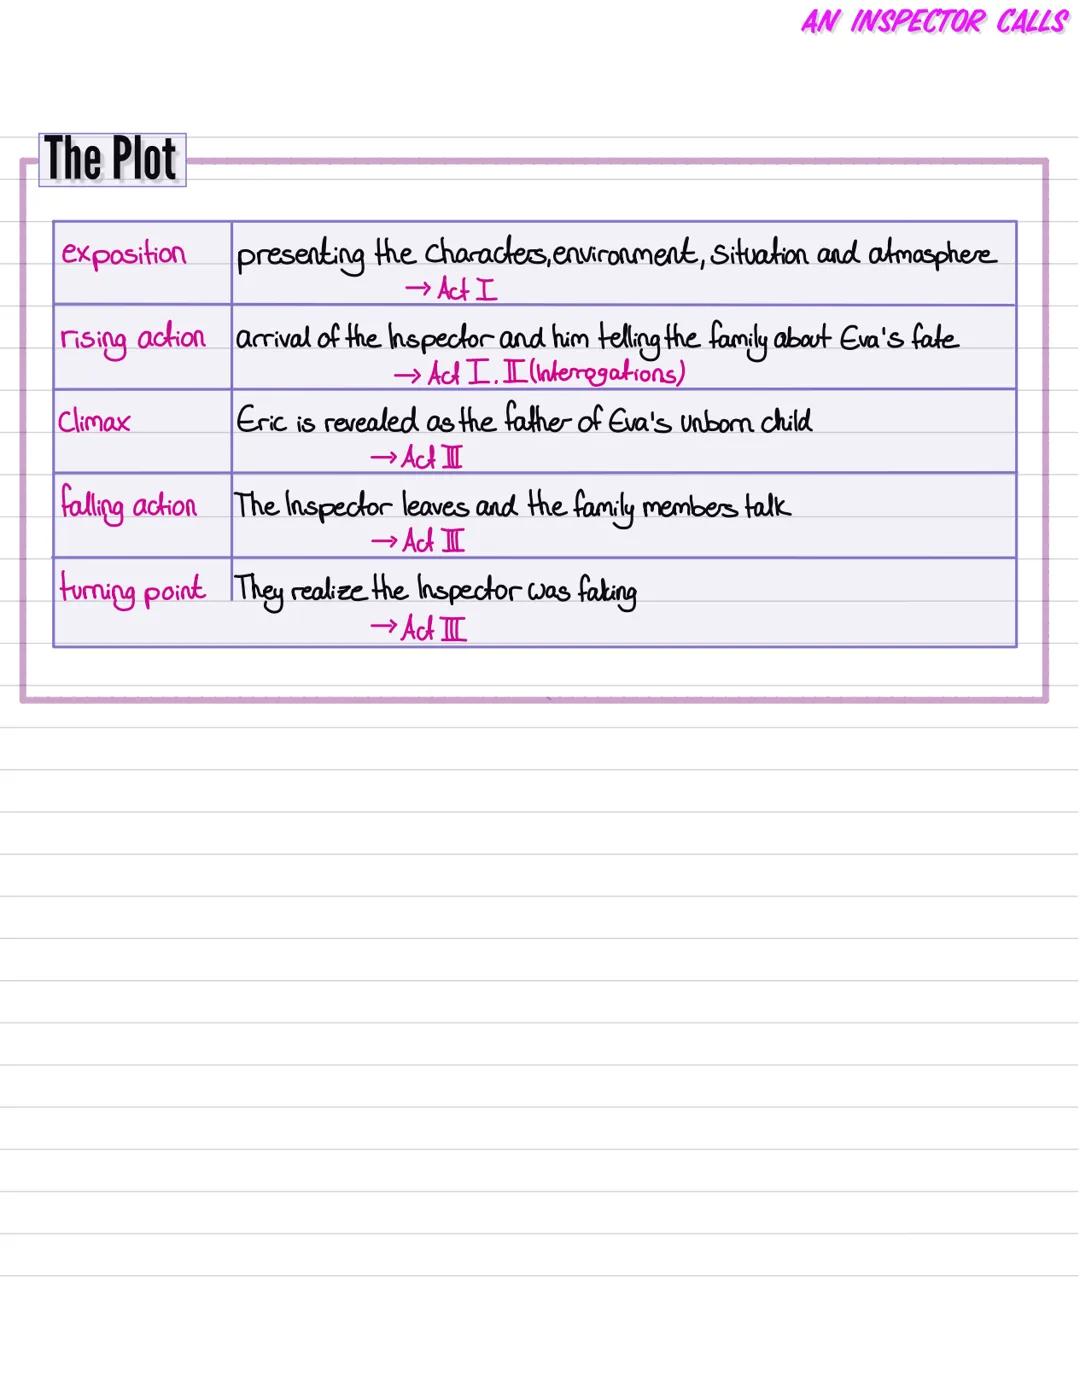 AN INSPECTOR CALLS
The Plot
exposition presenting the Characters, environment, Situation and atmosphere
→ Act I
rising action arrival of the Inspector and him telling the family about Eva's fate
→ Act I. II (Interrogations)
Climax Eric is revealed as the father of Eva's unborn child
→ Act III
falling action The Inspector leaves and the family members talk
→ Act III
turning point They realize the Inspector was faking
→ Act III